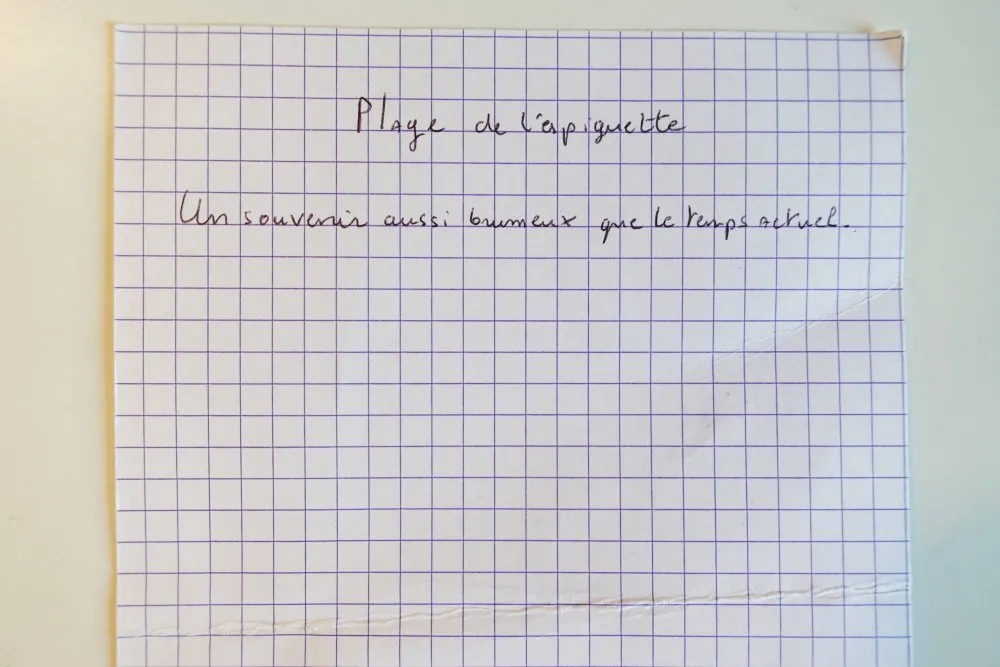 Plage de l'espiguette
Un souvenir aussi brumeux que le temps actuel.